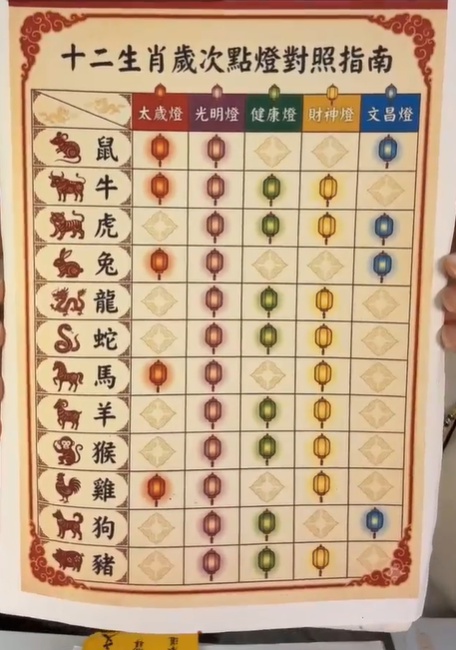 十二生肖歲次點燈對照指南
太歲燈 光明燈 健康燈 財神燈 文昌燈
鼠
牛
虎
兔
龍
蛇
馬
羊
猴
雞
狗
豬